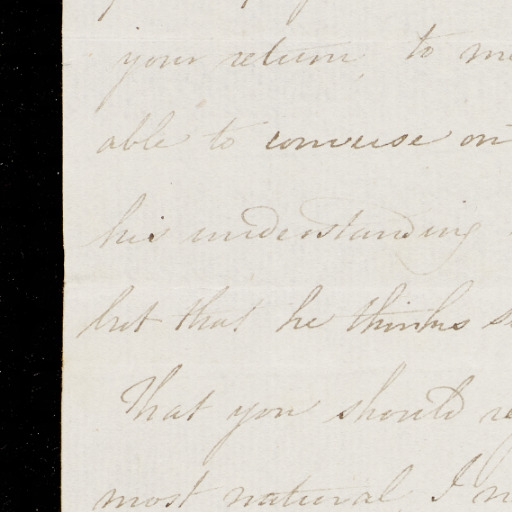 your return, to
able to converse on
his understanding
but that he thinks
That you should
most natural, I